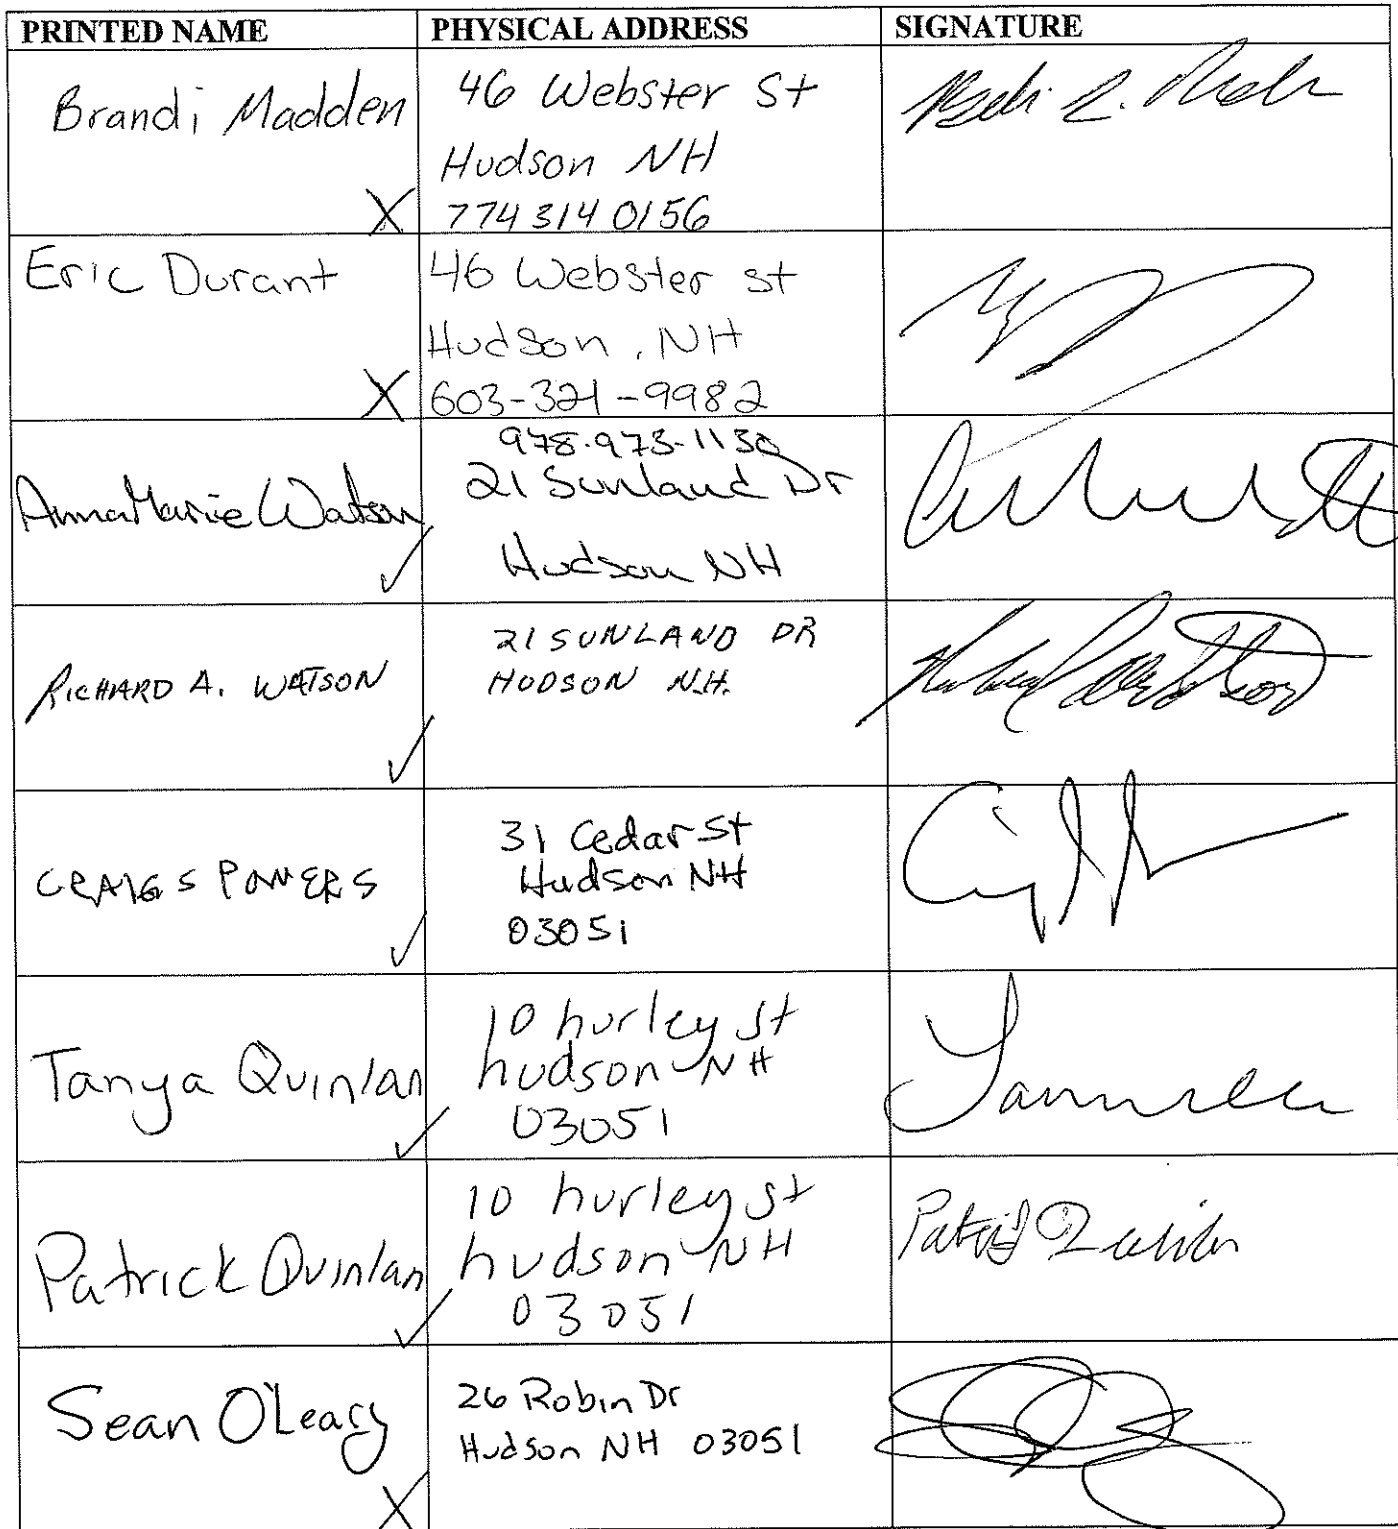 PRINTED NAME PHYSICAL ADDRESS SIGNATURE
Brandi Madden
46 Webster St
Hudson NH
X 774 314 0156
Eric Durant
46 Webster st
Hudson, NH
X 603-321-9982
AnnaMarie Watson
978-973-1130
21 Sunland Dr
Hudson NH
✓
RICHARD A. WATSON
21 SUNLAND DR
HUDSON N.H.
✓
CRAIG S POWERS
31 Cedar St
Hudson NH
03051
✓
Tanya Quinlan
10 hurley st
hudson NH
03051
✓
Patrick Quinlan
10 hurley st
hudson NH
03051
✓
Sean O'Leary
26 Robin Dr
Hudson NH 03051
X